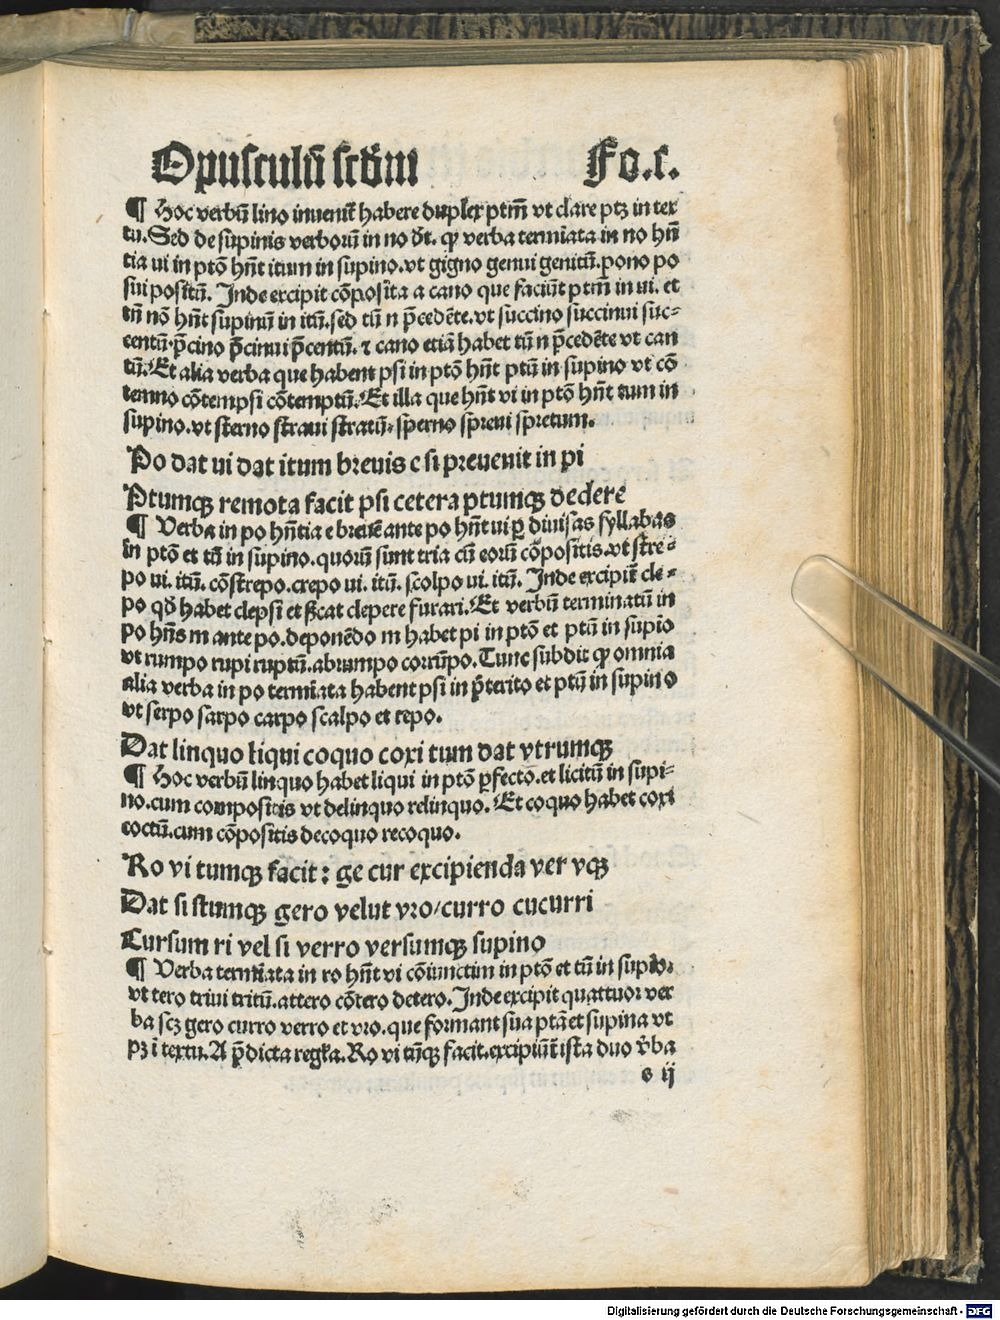 Opusculū scd̄m Fo.c.
¶ Hoc verbū lino inuenit̄ habere duplex ptm̄ vt clare ptꝫ in tex
tu. Sed de supinis verborū in no dr̄t. ꝙ verba termīata in no hn̄
tia ui in ptō hn̄t itum in supino. vt gigno genui genitū. pono po
sui positū. Inde excipit cōposita a cano que faciūt ptm̄ in ui. et
tn̄ nō hn̄t supinū in itū. sed tū n p̄cedēte. vt succino succinui suc⸗
centū. p̄cino p̄cinui p̄centū. ⁊ cano etiā habet tū n p̄cedēte vt can
tū. Et alia verba que habent psi in ptō hn̄t ptū in supino vt cō
temno cōtempsi cōtemptū. Et illa que hn̄t vi in ptō hn̄t tum in
supino. vt sterno straui stratū. sperno spreui spretum.
Po dat ui dat itum breuis c si preuenit in pi
Ptumqꝫ remota facit psi cetera ptumqꝫ dedere
¶ Verba in po hn̄tia e breuē ante po hn̄t ui ꝑ diuisas syllabas
in ptō et tū in supino. quorū sunt tria cū eorū cōpositis. vt stre⸗
po ui. itū. cōstrepo. crepo ui. itū. scolpo ui. itū. Inde excipit̄ cle⸗
po qd̄ habet clepsi et sīcat clepere furari. Et verbū terminatū in
po hn̄s m ante po. deponēdo m habet pi in ptō et ptū in supīo
vt rumpo rupi ruptū. abrumpo corrūpo. Tunc subdit ꝙ omnia
alia verba in po termīata habent psi in p̄terito et ptū in supino
vt serpo sarpo carpo scalpo et repo.
Dat linquo liqui coquo coxi tum dat vtrumqꝫ
¶ Hoc verbū linquo habet liqui in ptō ꝑfecto. et licitū in supi⸗
no. cum compositis vt delinquo relinquo. Et coquo habet coxi
coctū. cum cōpositis decoquo recoquo.
Ro vi tumqꝫ facit : ge cur excipienda ver vqꝫ
Dat si stumqꝫ gero velut vro/curro cucurri
Cursum ri vel si verro versumqꝫ supino
¶ Verba termīata in ro hn̄t vi cōiunctim in ptō et tū in supīo.
vt tero triui tritū. attero cōtero detero. Inde excipit quattuor ver
ba scꝫ gero curro verro et vro. que formant sua ptā et supina vt
pꝫ ī textu. A p̄dicta regl̄a. Ro vi tūqꝫ facit. excipiūt̄ ista duo v̄ba
s ij
Digitalisierung gefördert durch die Deutsche Forschungsgemeinschaft - DFG